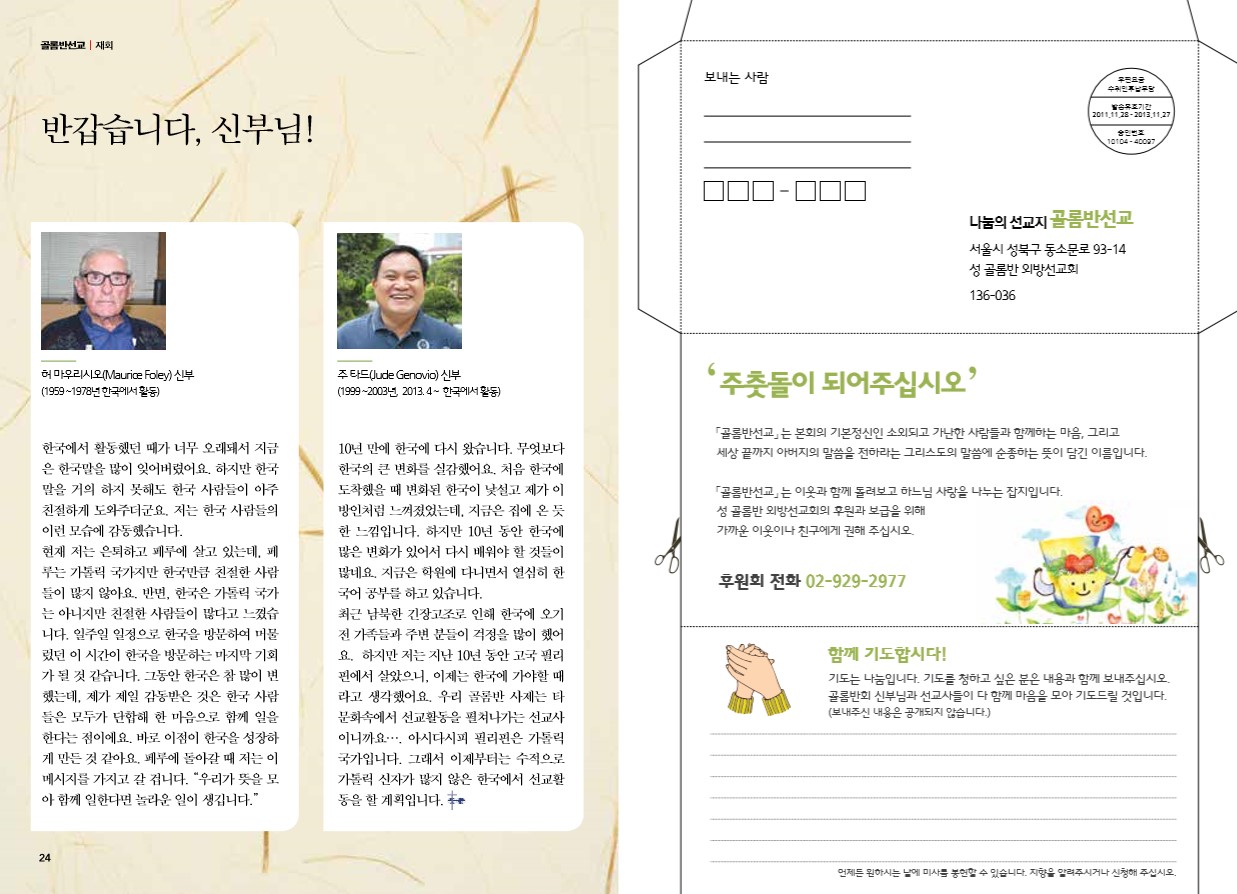 골롬반선교 | 재회
반갑습니다, 신부님!
허 마우리시오(Maurice Foley) 신부
(1959~1978년 한국에서 활동)
한국에서 활동했던 때가 너무 오래돼서 지금
은 한국말을 많이 잊어버렸어요. 하지만 한국
말을 거의 하지 못해도 한국 사람들이 아주
친절하게 도와주더군요. 저는 한국 사람들의
이런 모습에 감동했습니다.
현재 저는 은퇴하고 페루에 살고 있는데, 페
루는 가톨릭 국가지만 한국만큼 친절한 사람
들이 많지 않아요. 반면, 한국은 가톨릭 국가
는 아니지만 친절한 사람들이 많다고 느꼈습
니다. 일주일 일정으로 한국을 방문하여 머물
렀던 이 시간이 한국을 방문하는 마지막 기회
가 될 것 같습니다. 그동안 한국은 참 많이 변
했는데, 제가 제일 감동받은 것은 한국 사람
들은 모두가 단합해 한 마음으로 함께 일을
한다는 점이에요. 바로 이점이 한국을 성장하
게 만든 것 같아요. 페루에 돌아갈 때 저는 이
메시지를 가지고 갈 겁니다. “우리가 뜻을 모
아 함께 일한다면 놀라운 일이 생깁니다.”
주 타드(Jude Genovio) 신부
(1999~2003년, 2013. 4 ~ 한국에서 활동)
10년 만에 한국에 다시 왔습니다. 무엇보다
한국의 큰 변화를 실감했어요. 처음 한국에
도착했을 때 변화된 한국이 낯설고 제가 이
방인처럼 느껴졌었는데, 지금은 집에 온 듯
한 느낌입니다. 하지만 10년 동안 한국에
많은 변화가 있어서 다시 배워야 할 것들이
많네요. 지금은 학원에 다니면서 열심히 한
국어 공부를 하고 있습니다.
최근 남북한 긴장고조로 인해 한국에 오기
전 가족들과 주변 분들이 걱정을 많이 했어
요. 하지만 저는 지난 10년 동안 고국 필리
핀에서 살았으니, 이제는 한국에 가야할 때
라고 생각했어요. 우리 골롬반 사제는 타
문화속에서 선교활동을 펼쳐나가는 선교사
이니까요…. 아시다시피 필리핀은 가톨릭
국가입니다. 그래서 이제부터는 수적으로
가톨릭 신자가 많지 않은 한국에서 선교활
동을 할 계획입니다.
24
보내는 사람
우편요금
수취인후납부담
발송유효기간
2011.11.28 - 2013.11.27
승인번호
10104 - 40097
나눔의 선교지 골롬반선교
서울시 성북구 동소문로 93-14
성 골롬반 외방선교회
136-036
‘주춧돌이 되어주십시오’
「골롬반선교」는 본회의 기본정신인 소외되고 가난한 사람들과 함께하는 마음, 그리고
세상 끝까지 아버지의 말씀을 전하라는 그리스도의 말씀에 순종하는 뜻이 담긴 이름입니다.
「골롬반선교」는 이웃과 함께 돌려보고 하느님 사랑을 나누는 잡지입니다.
성 골롬반 외방선교회의 후원과 보급을 위해
가까운 이웃이나 친구에게 권해 주십시오.
후원회 전화 02-929-2977
함께 기도합시다!
기도는 나눔입니다. 기도를 청하고 싶은 분은 내용과 함께 보내주십시오.
골롬반회 신부님과 선교사들이 다 함께 마음을 모아 기도드릴 것입니다.
(보내주신 내용은 공개되지 않습니다.)
언제든 원하시는 날에 미사를 봉헌할 수 있습니다. 지향을 알려주시거나 신청해 주십시오.